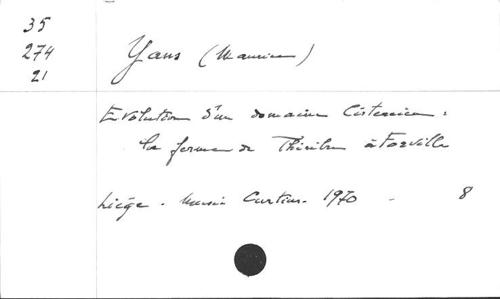 35
274
21
Yans (Maurice)
Evolution d'un domaine Cistercien :
la ferme de à Forville
Liège - Musée Curtius - 1970 - 8